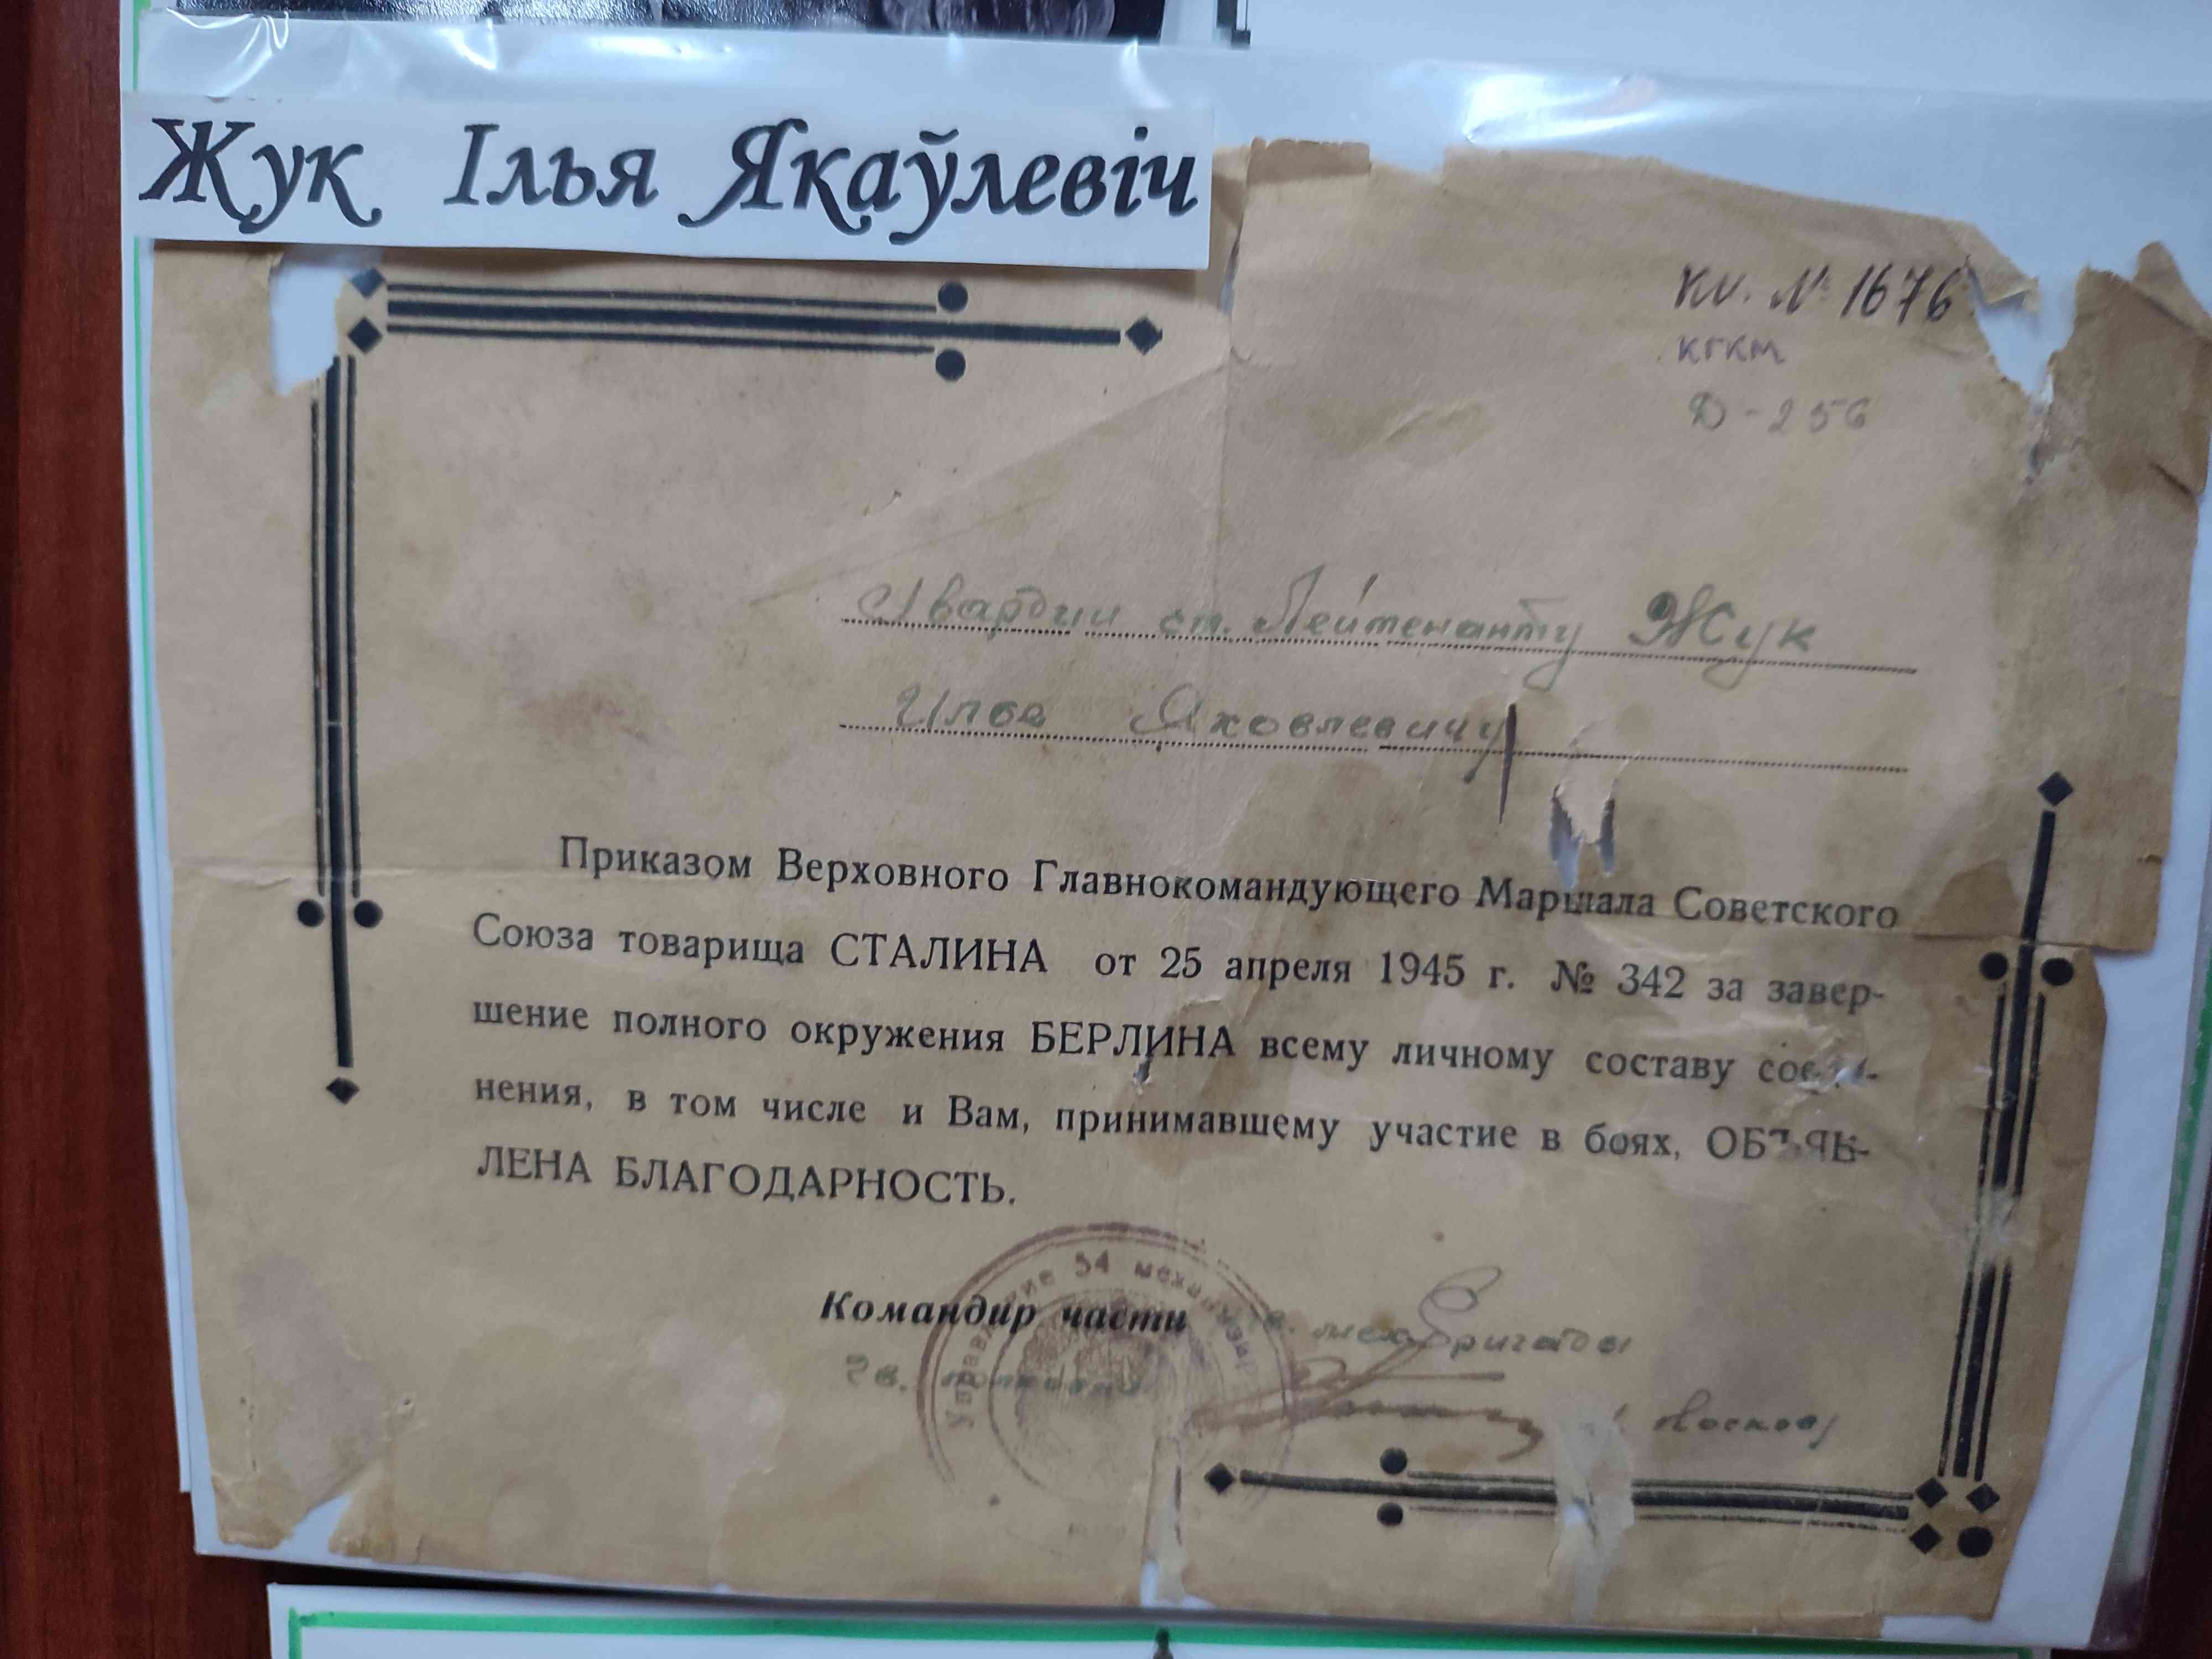 Жук Ілья Якаўлевіч
КП. № 1676
КГКМ
Д-256
Гвардии ст. Лейтенанту Жук
Илье Яковлевичу
Приказом Верховного Главнокомандующего Маршала Советского
Союза товарища СТАЛИНА от 25 апреля 1945 г. № 342 за завер-
шение полного окружения БЕРЛИНА всему личному составу соеди-
нения, в том числе и Вам, принимавшему участие в боях, ОБЪЯВ-
ЛЕНА БЛАГОДАРНОСТЬ.
Управление 54 механизир
Командир части мехбригады
Гв.